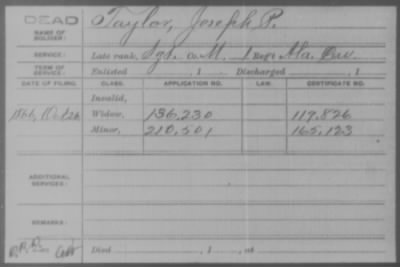 DEAD
NAME OF SOLDIER: Taylor, Joseph P.
SERVICE: Late rank, Sgt. Co. M, 1 Reg't Ala. Cav.
TERM OF SERVICE: Enlisted , 1 Discharged , 1
DATE OF FILING. CLASS. APPLICATION NO. LAW. CERTIFICATE NO.
Invalid,
1866, Oct 26 Widow, 136,230 119,826
Minor, 210,501 165,123
ADDITIONAL SERVICES:
REMARKS:
Died , 1 , at